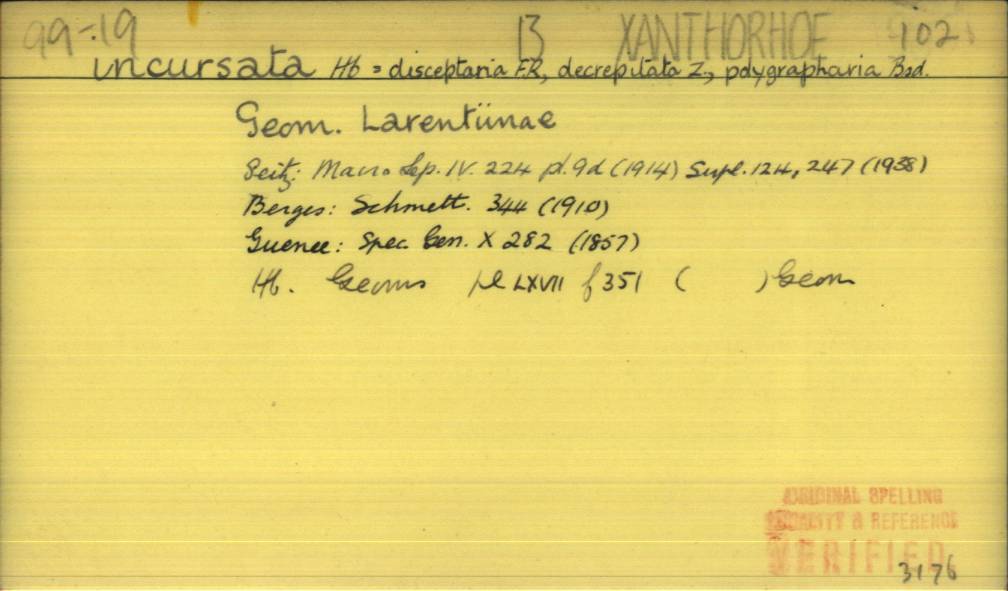 99-19 13 XANTHORHOE 102
incursata Hb = disceptaria F.R., decrepitata Z., polygrapharia Bsd.
Geom. Larentiinae
Seitz: Macro Lep. IV. 224 pl. 9d (1914) Supl. 124, 247 (1938)
Berges: Schmett. 344 (1910)
Guenee: Spec Gen. X 282 (1857)
Hb. Geoms pl LXVII f 351 ( ) Geom
ORIGINAL SPELLING
LOCALITY & REFERENCE
VERIFIED
3176